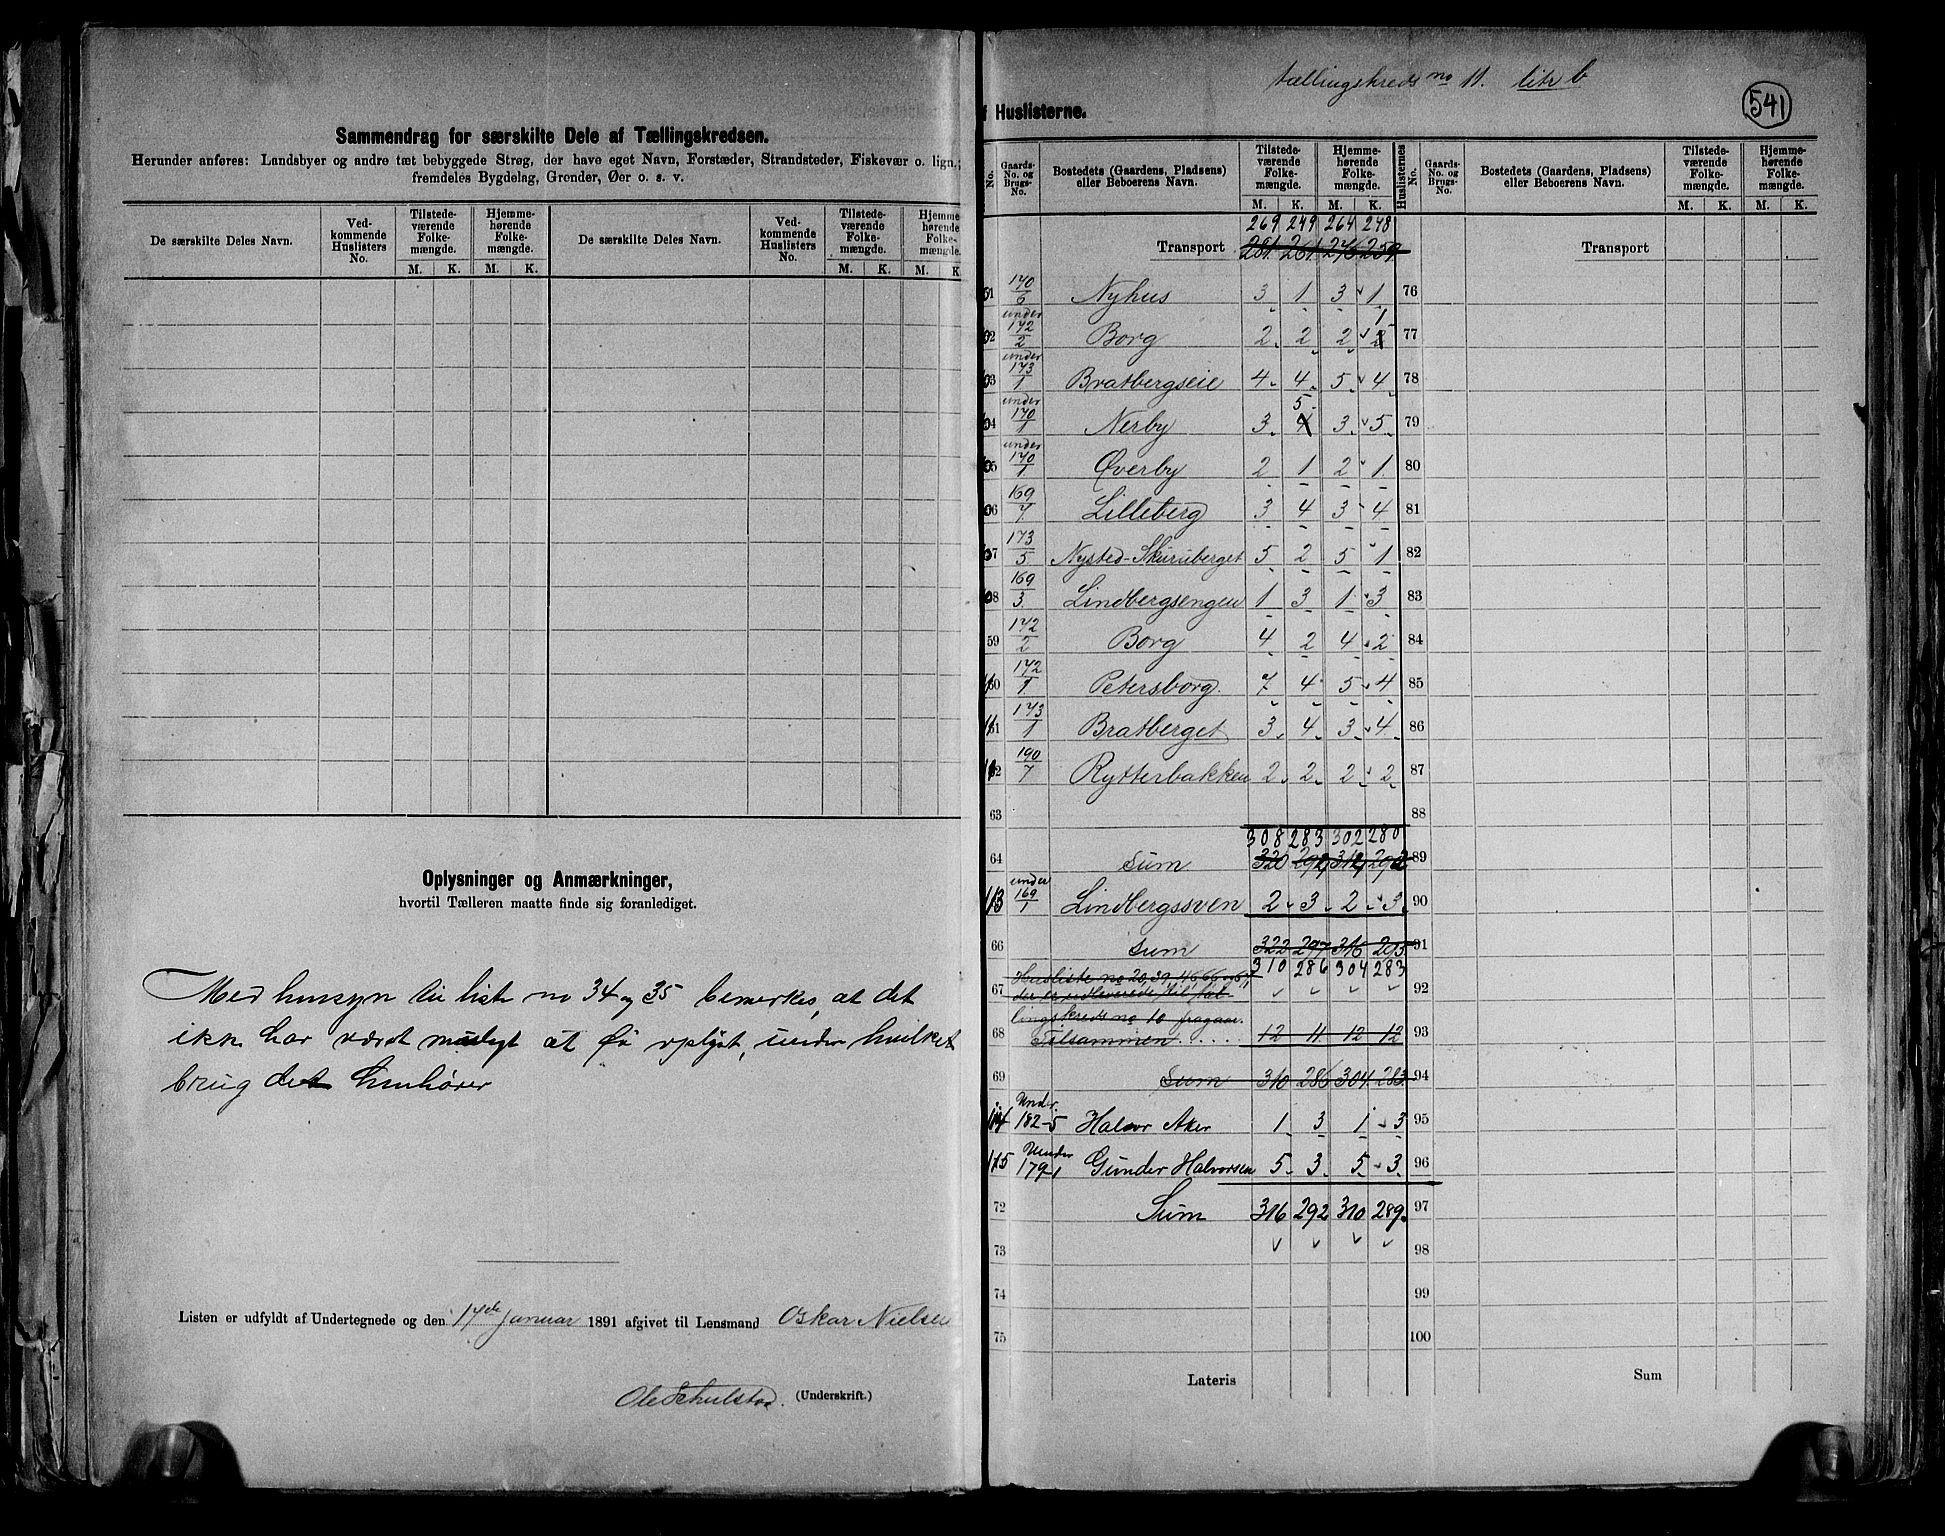 Sammendrag for særskilte Dele af Tællingskredsen.
Herunder anføres: Landsbyer og andre tæt bebyggede Strøg, der have eget Navn, Forstæder, Strandsteder, Fiskevær o. lign.;
fremdeles Bygdelag, Grender, Øer o. s. v.
De særskilte Deles Navn. Ved-kommende Huslisters No. Tilstede-værende Folke-mængde. Hjemme-hørende Folke-mængde. De særskilte Deles Navn. Ved-kommende Huslisters No. Tilstede-værende Folke-mængde. Hjemme-hørende Folke-mængde.
M. K. M. K. M. K. M. K.
Oplysninger og Anmærkninger,
hvortil Tælleren maatte finde sig foranlediget.
Med hensyn til liste no 34 og 35 bemerkes, at det
ikke har været muligt at få oplyst, under hvilket
brug det henhører
Listen er udfyldt af Undertegnede og den 17de januar 1891 afgivet til Lensmand Oskar Nielsen
Ole Schulstad. (Underskrift.)
tællingskreds no 11. litr b
541
f Huslisterne.
No. Gaards-No. og Brugs-No. Bostedets (Gaardens, Pladsens) eller Beboerens Navn. Tilstede-værende Folke-mængde. Hjemme-hørende Folke-mængde. Huslisternes No. Gaards-No. og Brugs-No. Bostedets (Gaardens, Pladsens) eller Beboerens Navn. Tilstede-værende Folke-mængde. Hjemme-hørende Folke-mængde.
M. K. M. K. M. K. M. K.
269 249 264 248
Transport 281 261 276 259 Transport
51 170/6 Nyhus 3 1 3 1 76
52 under 172/2 Borg 2 2 2 2 1 77
53 under 173/1 Bratbergseie 4 4 5 4 78
54 under 170/1 Nerby 3 4 5 3 5 79
55 under 170/1 Øverby 2 1 2 1 80
56 169/7 Lilleberg 3 4 3 4 81
57 173/5 Nysted-Skuruberget 5 2 5 1 82
58 169/3 Lindbergsengen 1 3 1 3 83
59 172/2 Borg 4 2 4 2 84
60 172/1 Petersborg. 7 4 5 4 85
61 173/1 Bratberget 3 4 3 4 86
62 190/7 Rytterbakken 2 2 2 2 87
63 88
308 283 302 280
64 Sum 320 89
113 under 169/1 Lindbergssven 2 3 2 3 90
66 Sum 322 297 316 91
310 286 304 283
67 Husliste no 20, 39, 46, 66 og 67, 92
der er udleverede til tæl
lingskreds no 10 fragaar.
68 Tilsammen . . . 12 11 12 12 93
69 Sum 310 286 304 283 94
114 Under 182-5 Halvor Aker 1 3 1 3 95
115 Under 179-1 Gunder Halvorsen 5 3 5 3 96
72 Sum 316 292 310 289. 97
73 98
74 99
75 100
Lateris Sum